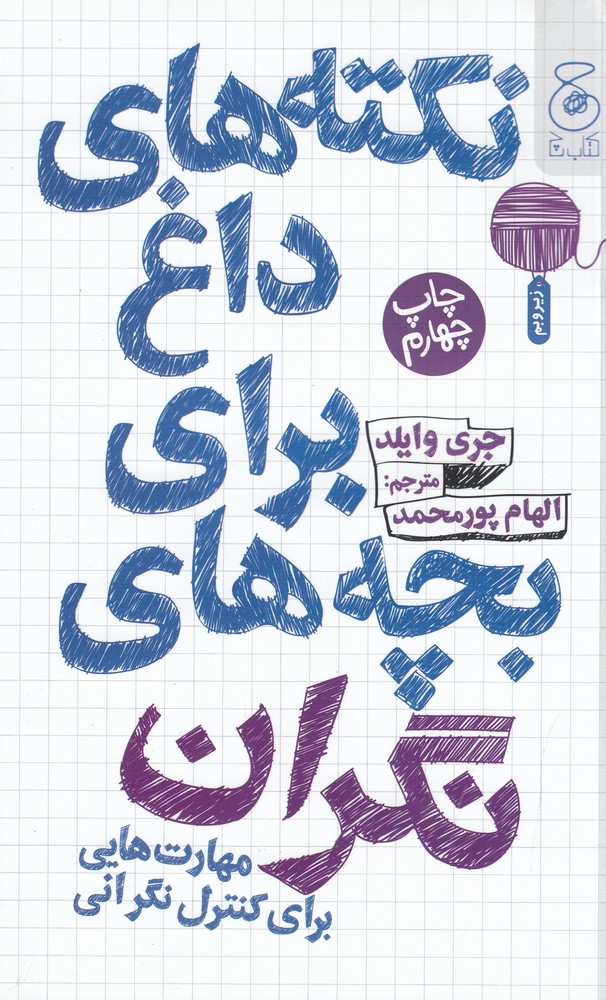 نکته‌های
داغ
برای
بچه‌های
نگران
مهارت‌هایی
برای کنترل نگرانی
جری وایلد
مترجم:
الهام پورمحمد
چاپ
چهارم
زیر و بم
کتاب چ